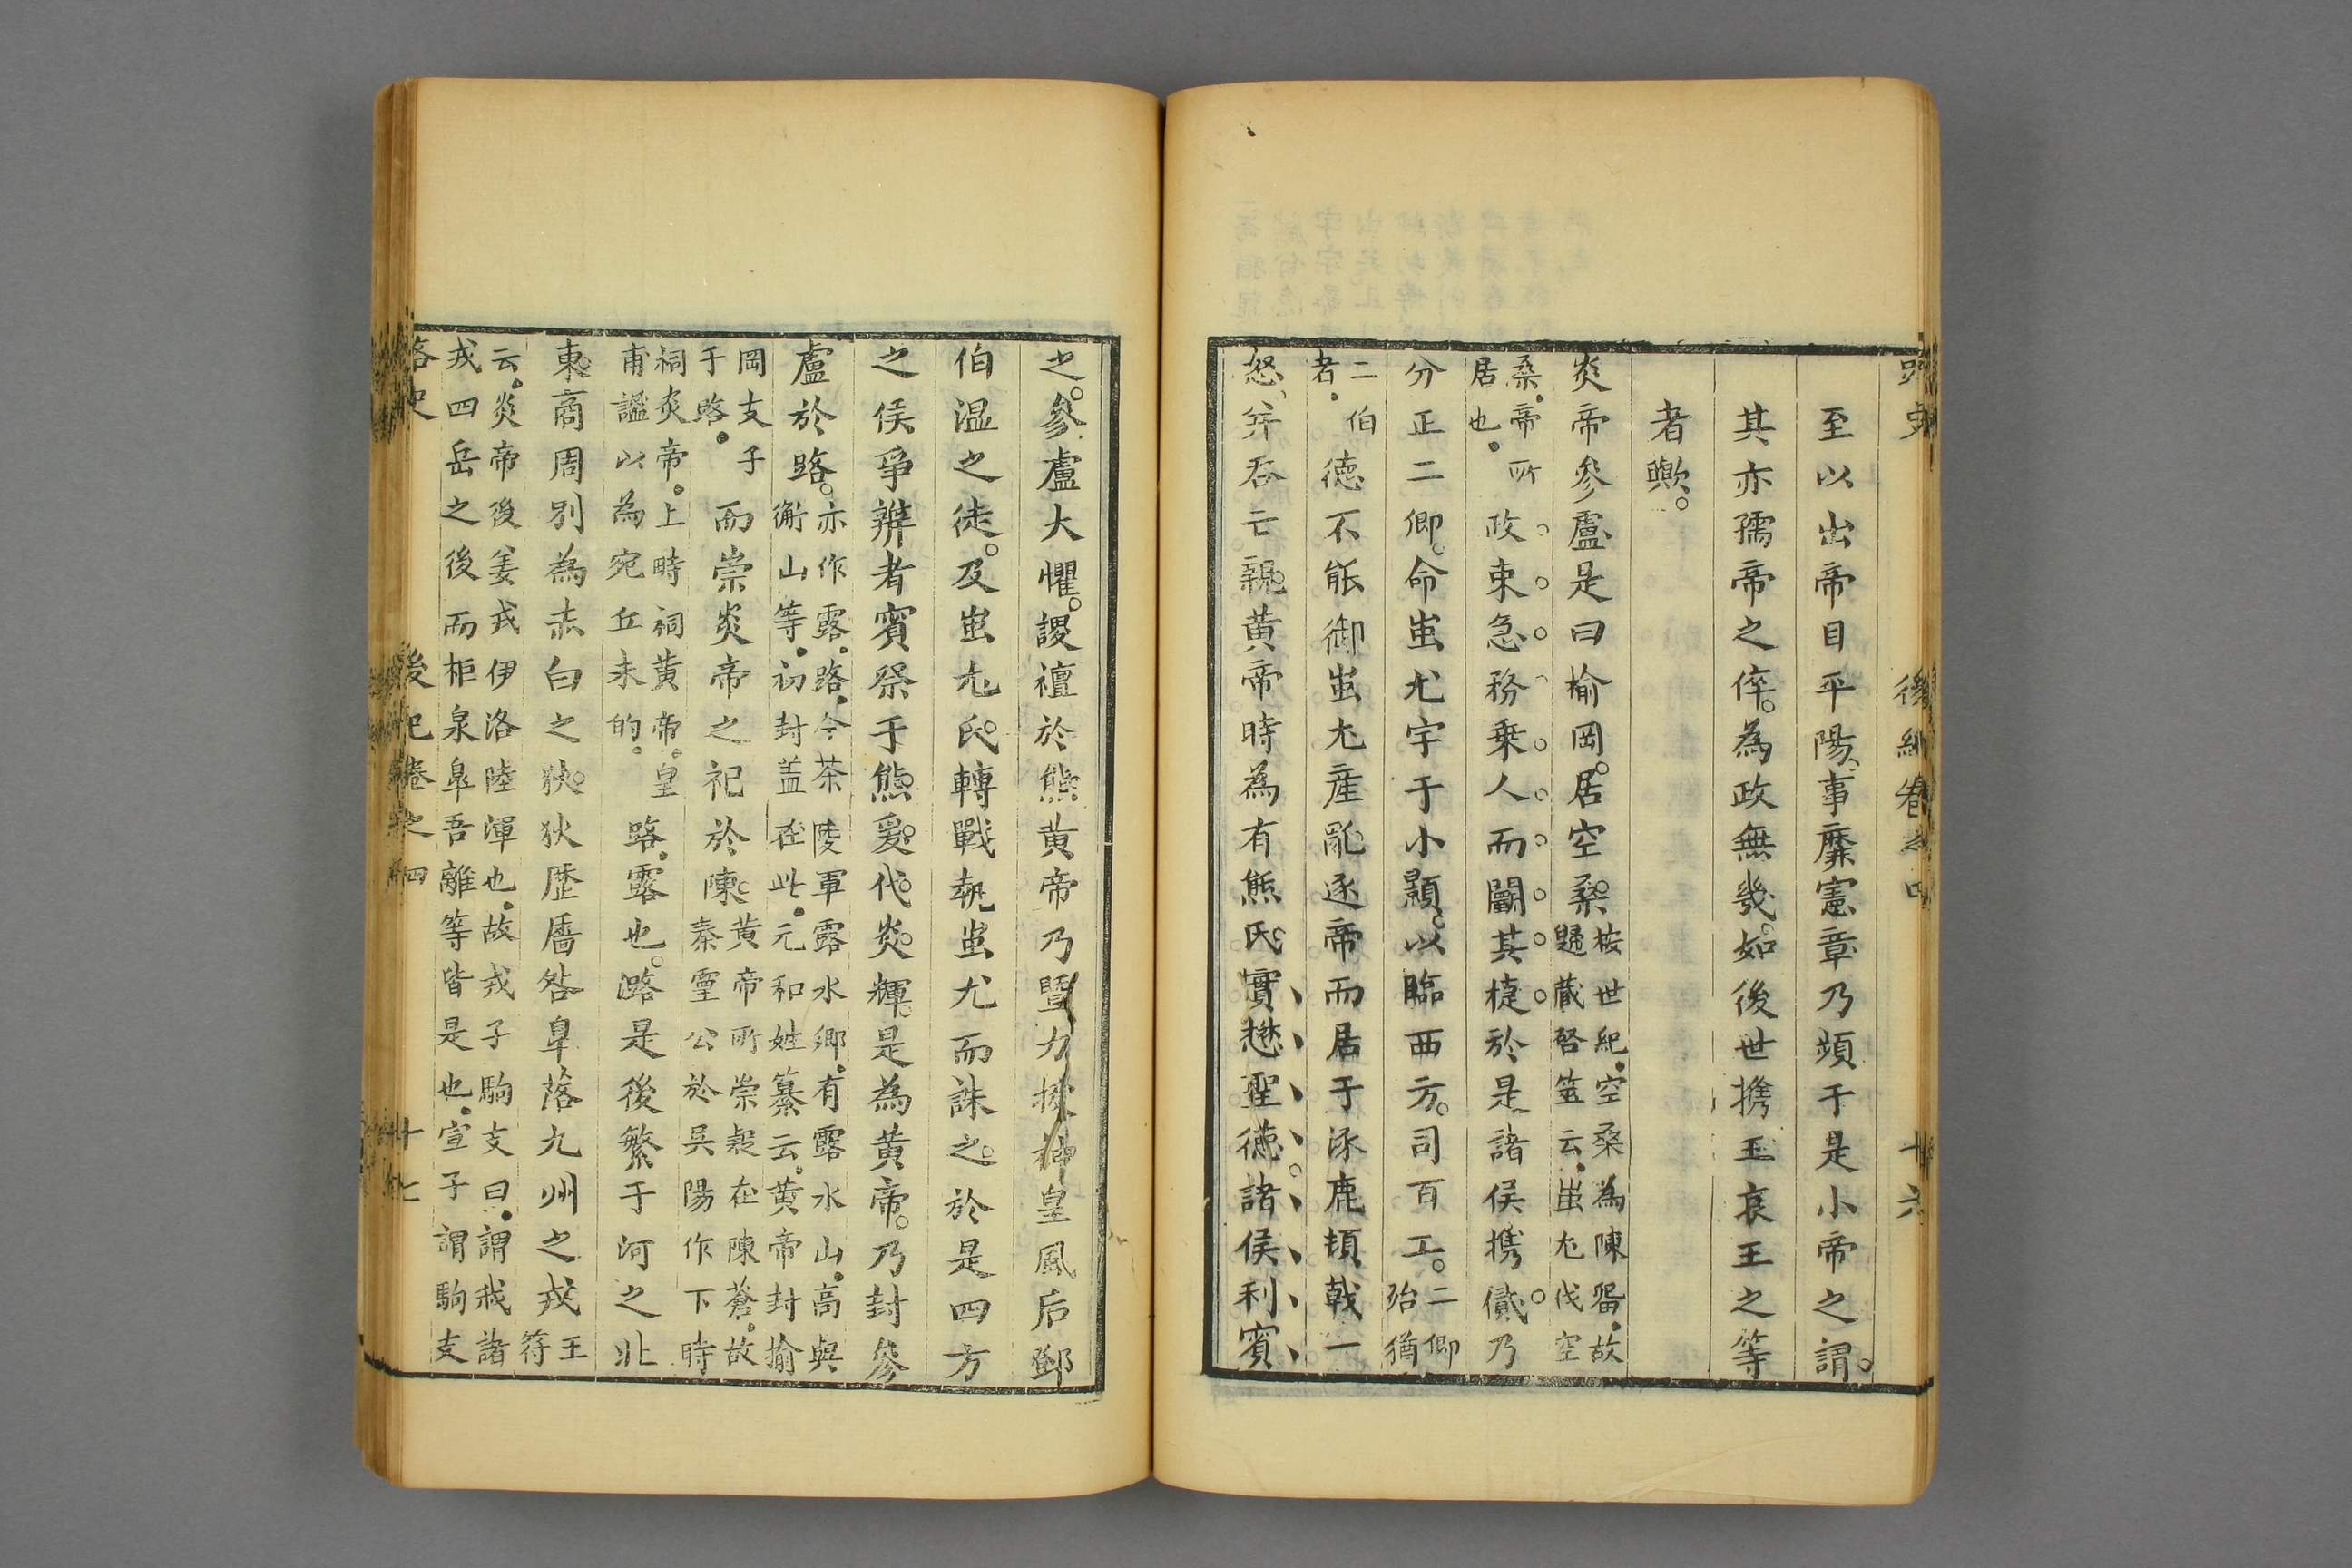 路史 後紀卷之四 十六
至以出帝目平陽事靡憲章乃頻于是小帝之謂
其亦孺帝之倅為政無幾如後世攜王哀王之等
者歟
炎帝參盧是曰榆岡居空桑
按世紀空桑為陳留故
歸藏啓筮云蚩尤伐空
桑帝所
居也
政束急務乗人而鬭其捷於是諸侯携貳乃
分正二卿命蚩尤宇于小顥以臨西方司百工
二卿
殆猶
二伯
者
德不能御蚩尤産亂逐帝而居于涿鹿頓戟一
怒并吞亡親黄帝時為有熊氏實懋聖德諸侯利賓
之參盧大懼謖襢於熊黄帝乃暨力牧神皇風后鄧
伯温之徒及蚩尤氏轉戰執蚩尤而誅之於是四方
之侯爭辨者賓祭于熊爰代炎輝是為黄帝乃封參
盧於路
亦作露路今茶陵軍露水鄉有露水山高與
衡山等初封蓋在此元和姓纂云黄帝封揄
岡支子
于路
而崇炎帝之祀於陳
黄帝所崇殺在陳蒼故
秦靈公於吳陽作下畤
祠炎帝上畤祠黄帝皇
甫謐以為宛丘未的
路露也潞是後繁于河之北
東商周别為赤白之狄狄歴廧咎皐落九州之戎
王
符
云炎帝後姜戎伊洛陸渾也故戎子駒支曰謂我諸
戎四岳之後而柜泉皐吾離等皆是也宣子謂駒支
路史 後紀卷之四 十七